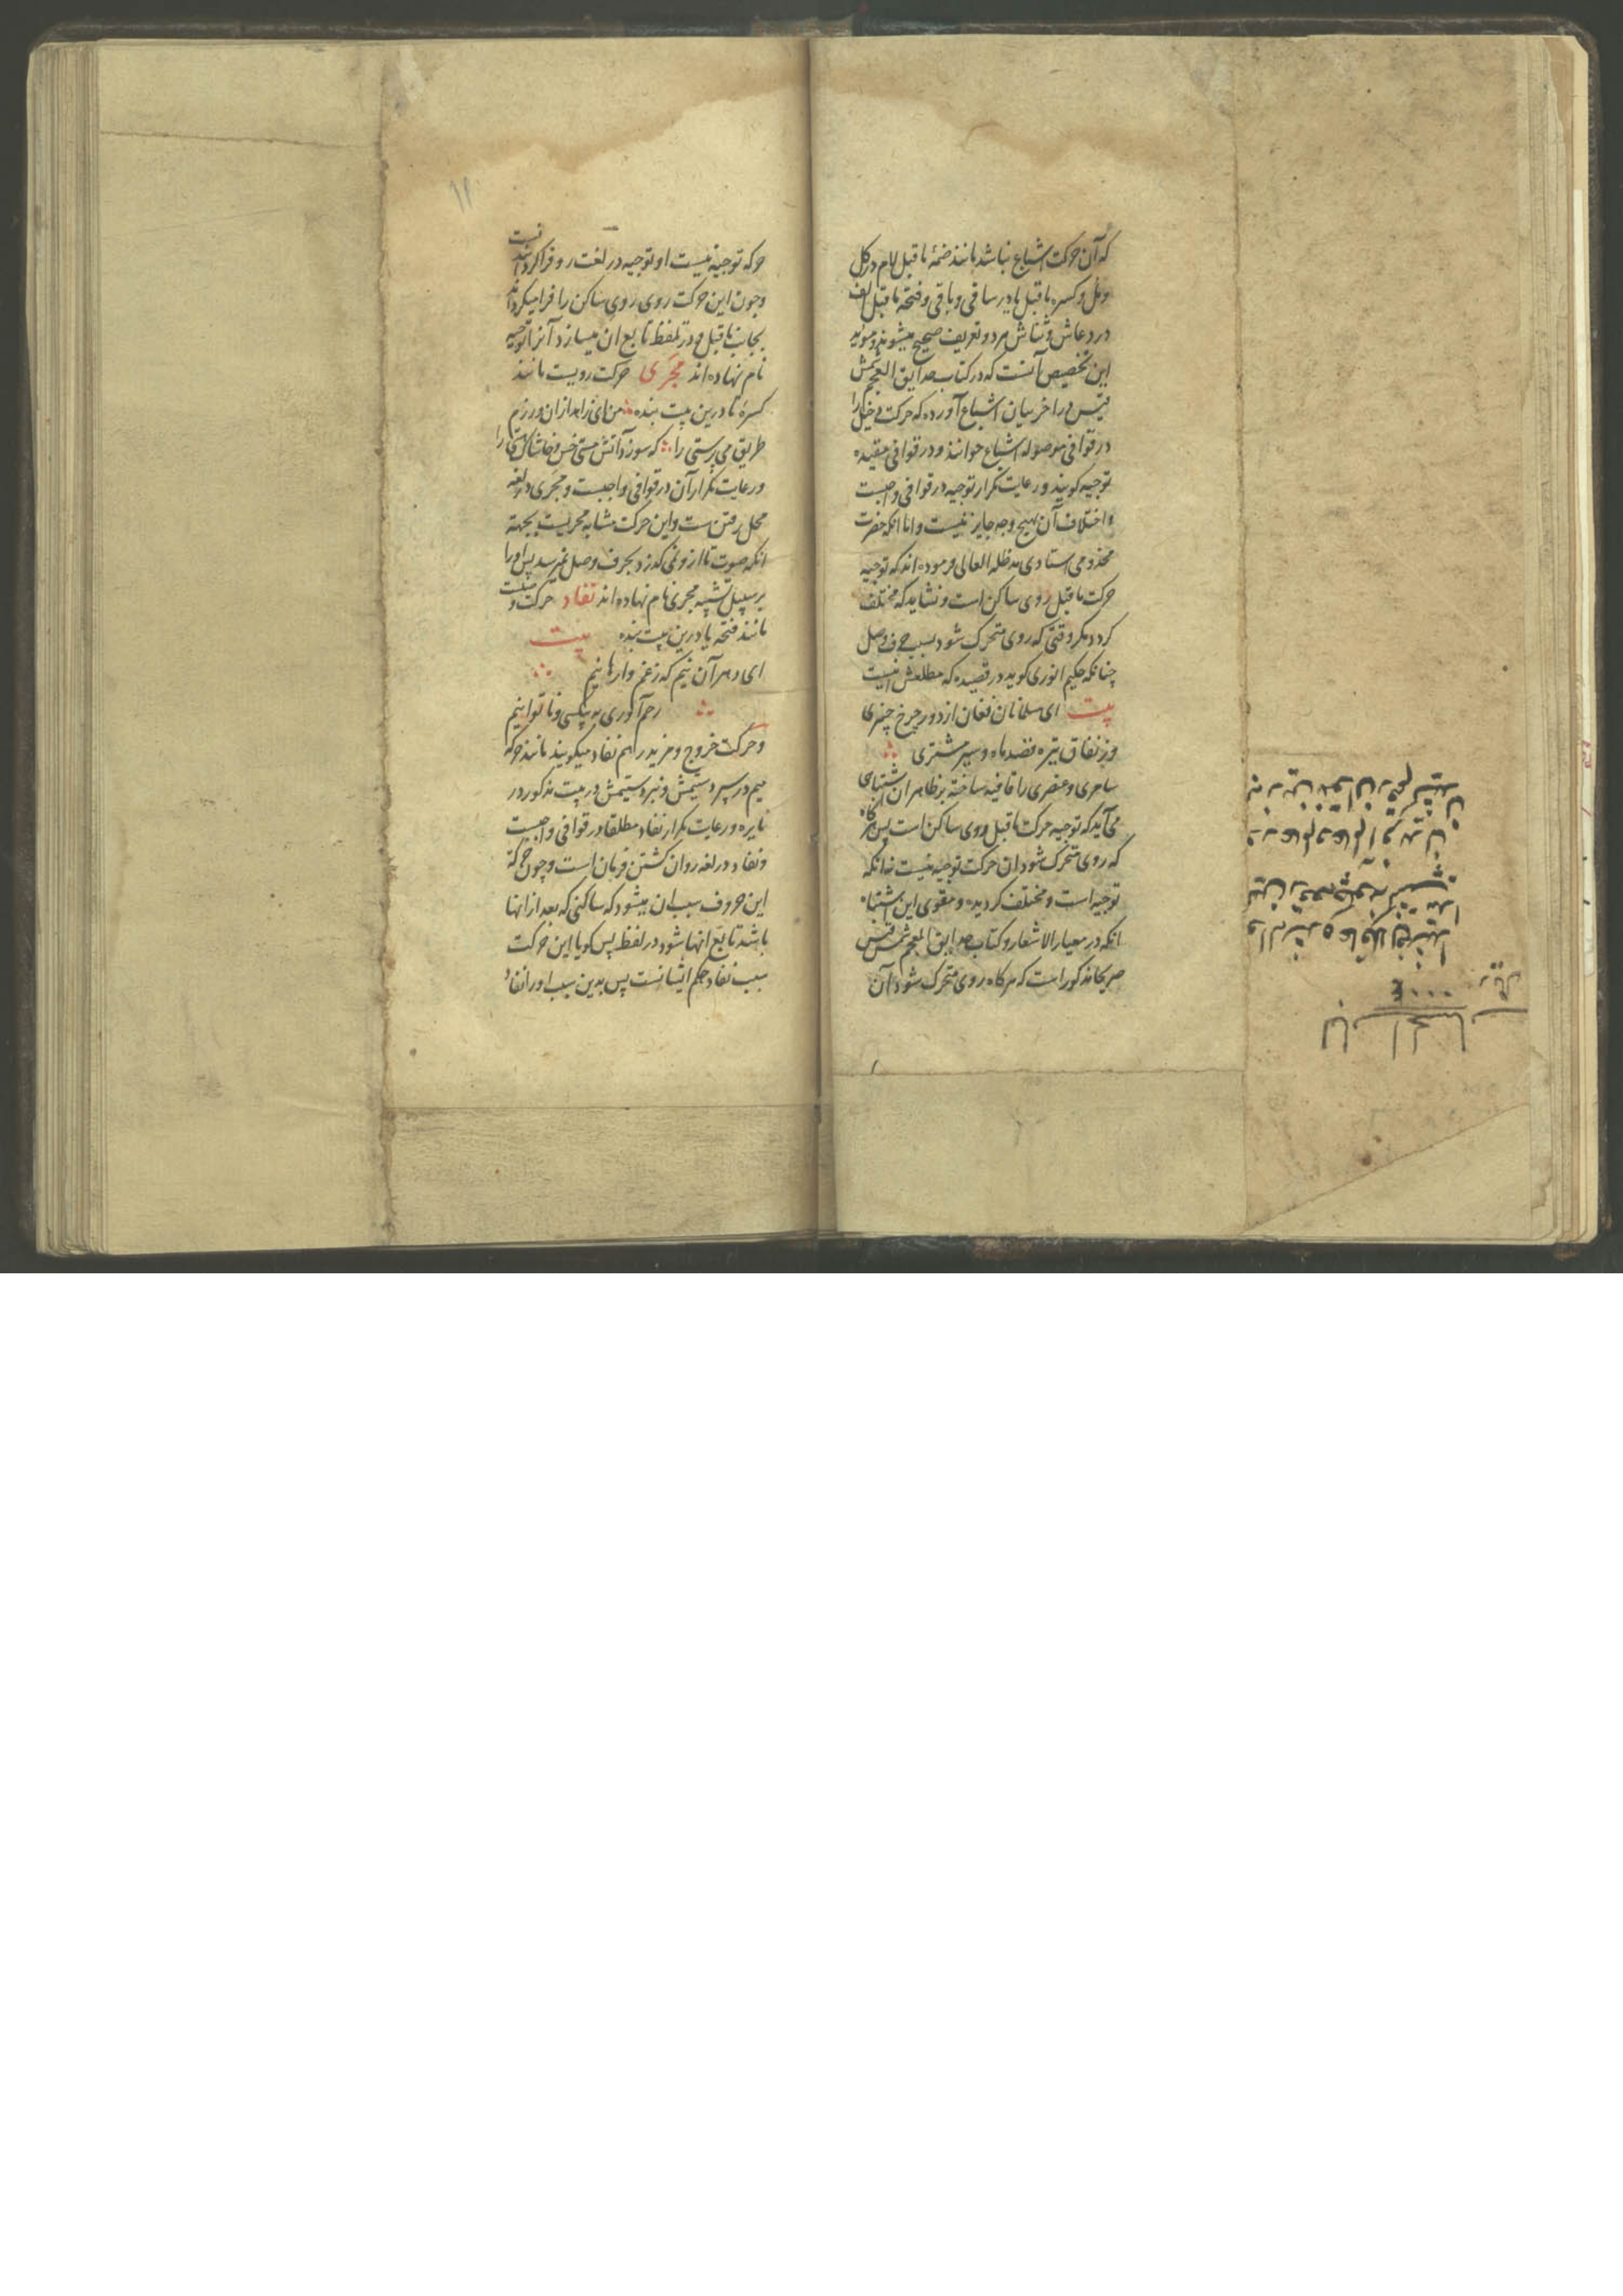 که آن حرکت اشباع نباشد مانند ضمهٔ ماقبل لام در کل
و مل و کسره ماقبل یا در ساقی و باقی و فتحه ماقبل الف
در دعاش و ثناش هر دو تعریف صحیح میشوند و موید
این تخصیص آنست که در کتاب حدایق العجم شمس
قیس در آخر بیان اشباع آورده که حرکت دخیل را
در قوافی موصوله اشباع خوانند و در قوافی مقیده
توجیه کویند و رعایت تکرار توجیه در قوافی واجبست
و اختلاف آن بهیچ وجه جایز نیست و اما انکه حضرت
مخذومی استادی مد ظله العالی فرموده اند که توجیه
حرکت ماقبل روی ساکن است و نشاید که مختلف
کردد مکر وقتی که روی متحرک شود بسبب حرف وصل
چنانکه حکیم انوری کوید در قصیده که مطلعش اینست
بیت ای مسلمانان فغان از دور چرخ چنبری
وز نفاق تیر و قصد ماه و سیر مشتری
سامری و عنصری را قافیه ساخته بر ظاهر ان اشتباهی
می آید که توجیه حرکت ماقبل روی ساکن است پس هرکاه
که روی متحرک شود ان حرکت توجیه نیست نه انکه
توجیه است و مختلف کردیده و مقوی این اشتباه
انکه در معیار الاشعار و کتاب حدایق المعجم شمس قیس
صریحا مذکور است که هر کاه روی متحرک شود آن
۱۱
حرکه توجیه نیست او توجیه در لغت رو فرا کردانیدنست
و چون این حرکت روی روی ساکن را فرا میکرداند
بجانب ماقبل و در تلفظ تابع ان میسازد آنرا توجیه
نام نهاده اند مجری حرکت رویست مانند
کسرهٔ تا درین بیت بنده من ای زاهد ازان ورزم
طریق می پرستی را که سوزد آتش مستی خس و خاشاک هستی را
و رعایت تکرار آن در قوافی واجبست و مجری در لغه
محل رفتن ست و این حرکت مشابه مجریست بجهة
انکه صوت تا از و نمی کذرد بحرف وصل نمیرسد پس او را
بر سبیل تشبیه مجری نام نهاده اند نفاد حرکت وصلست
مانند فتحه یا درین بیت بنده بیت
ای دهر آن نیم که زغم وارهانیم
رحم آوری به بیکسی و ناتوانیم
و حرکت خروج و مزید را هم نفاد میکویند مانند حرکه
میم در سپردستیمش و نبردستیمش در بیت مذکور در
نایره و رعایت تکرار نفاد مطلقا در قوافی واجبست
و نفاد در لغه روان کشتن فرمان است و چون حرکة
این حروف سبب ان میشود که ساکنی که بعد از انها
باشد تابع انها شود در لفظ پس کویا این حرکت
سبب نفاد حکم ایشانست پس بدین سبب او را نفاد